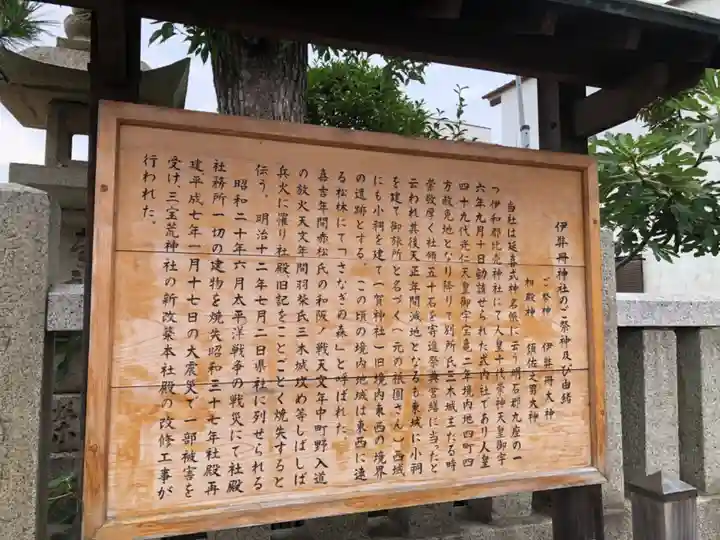 伊弉冊神社のご祭神及び由緒
ご祭神 伊弉冊大神
相殿神 須佐之男大神
当社は延喜式神名帳に云う明石郡九座の一
つ伊和都比売神社にて人皇十代崇神天皇御宇
六年九月十日勧請せられた式内社であり人皇
四十九代光仁天皇御宇宝亀二年境内地四町四
方赦免地となり降りて別所氏三木城主たる時
崇敬厚く社領五十石を寄進祭典営繕に当たと
云われ其後天正年間減地となるも東城に小祠
を建て御旅所と名づく(元の祇園さん)西城
にも小祠を建て(賀神社)旧境内東西の境界
の遺跡とする。この頃の境内地域は東西に連
る松林にて「さなぎの森」と呼ばれた。
嘉吉年間赤松氏の和阪ノ戦天文年中町野入道
の放火天文年間羽柴氏三木城攻め等しばしば
兵火に罹り社殿旧記をことごとく焼失すると
伝う。明治十二年七月二日県社に列せられる
昭和二十年六月太平洋戦争の戦災にて社殿
社務所一切の建物を焼失昭和三十七年社殿再
建平成七年一月十七日の大震災で一部被害を
受け、三宝荒神社の新改築本社殿の改修工事が
行われた。